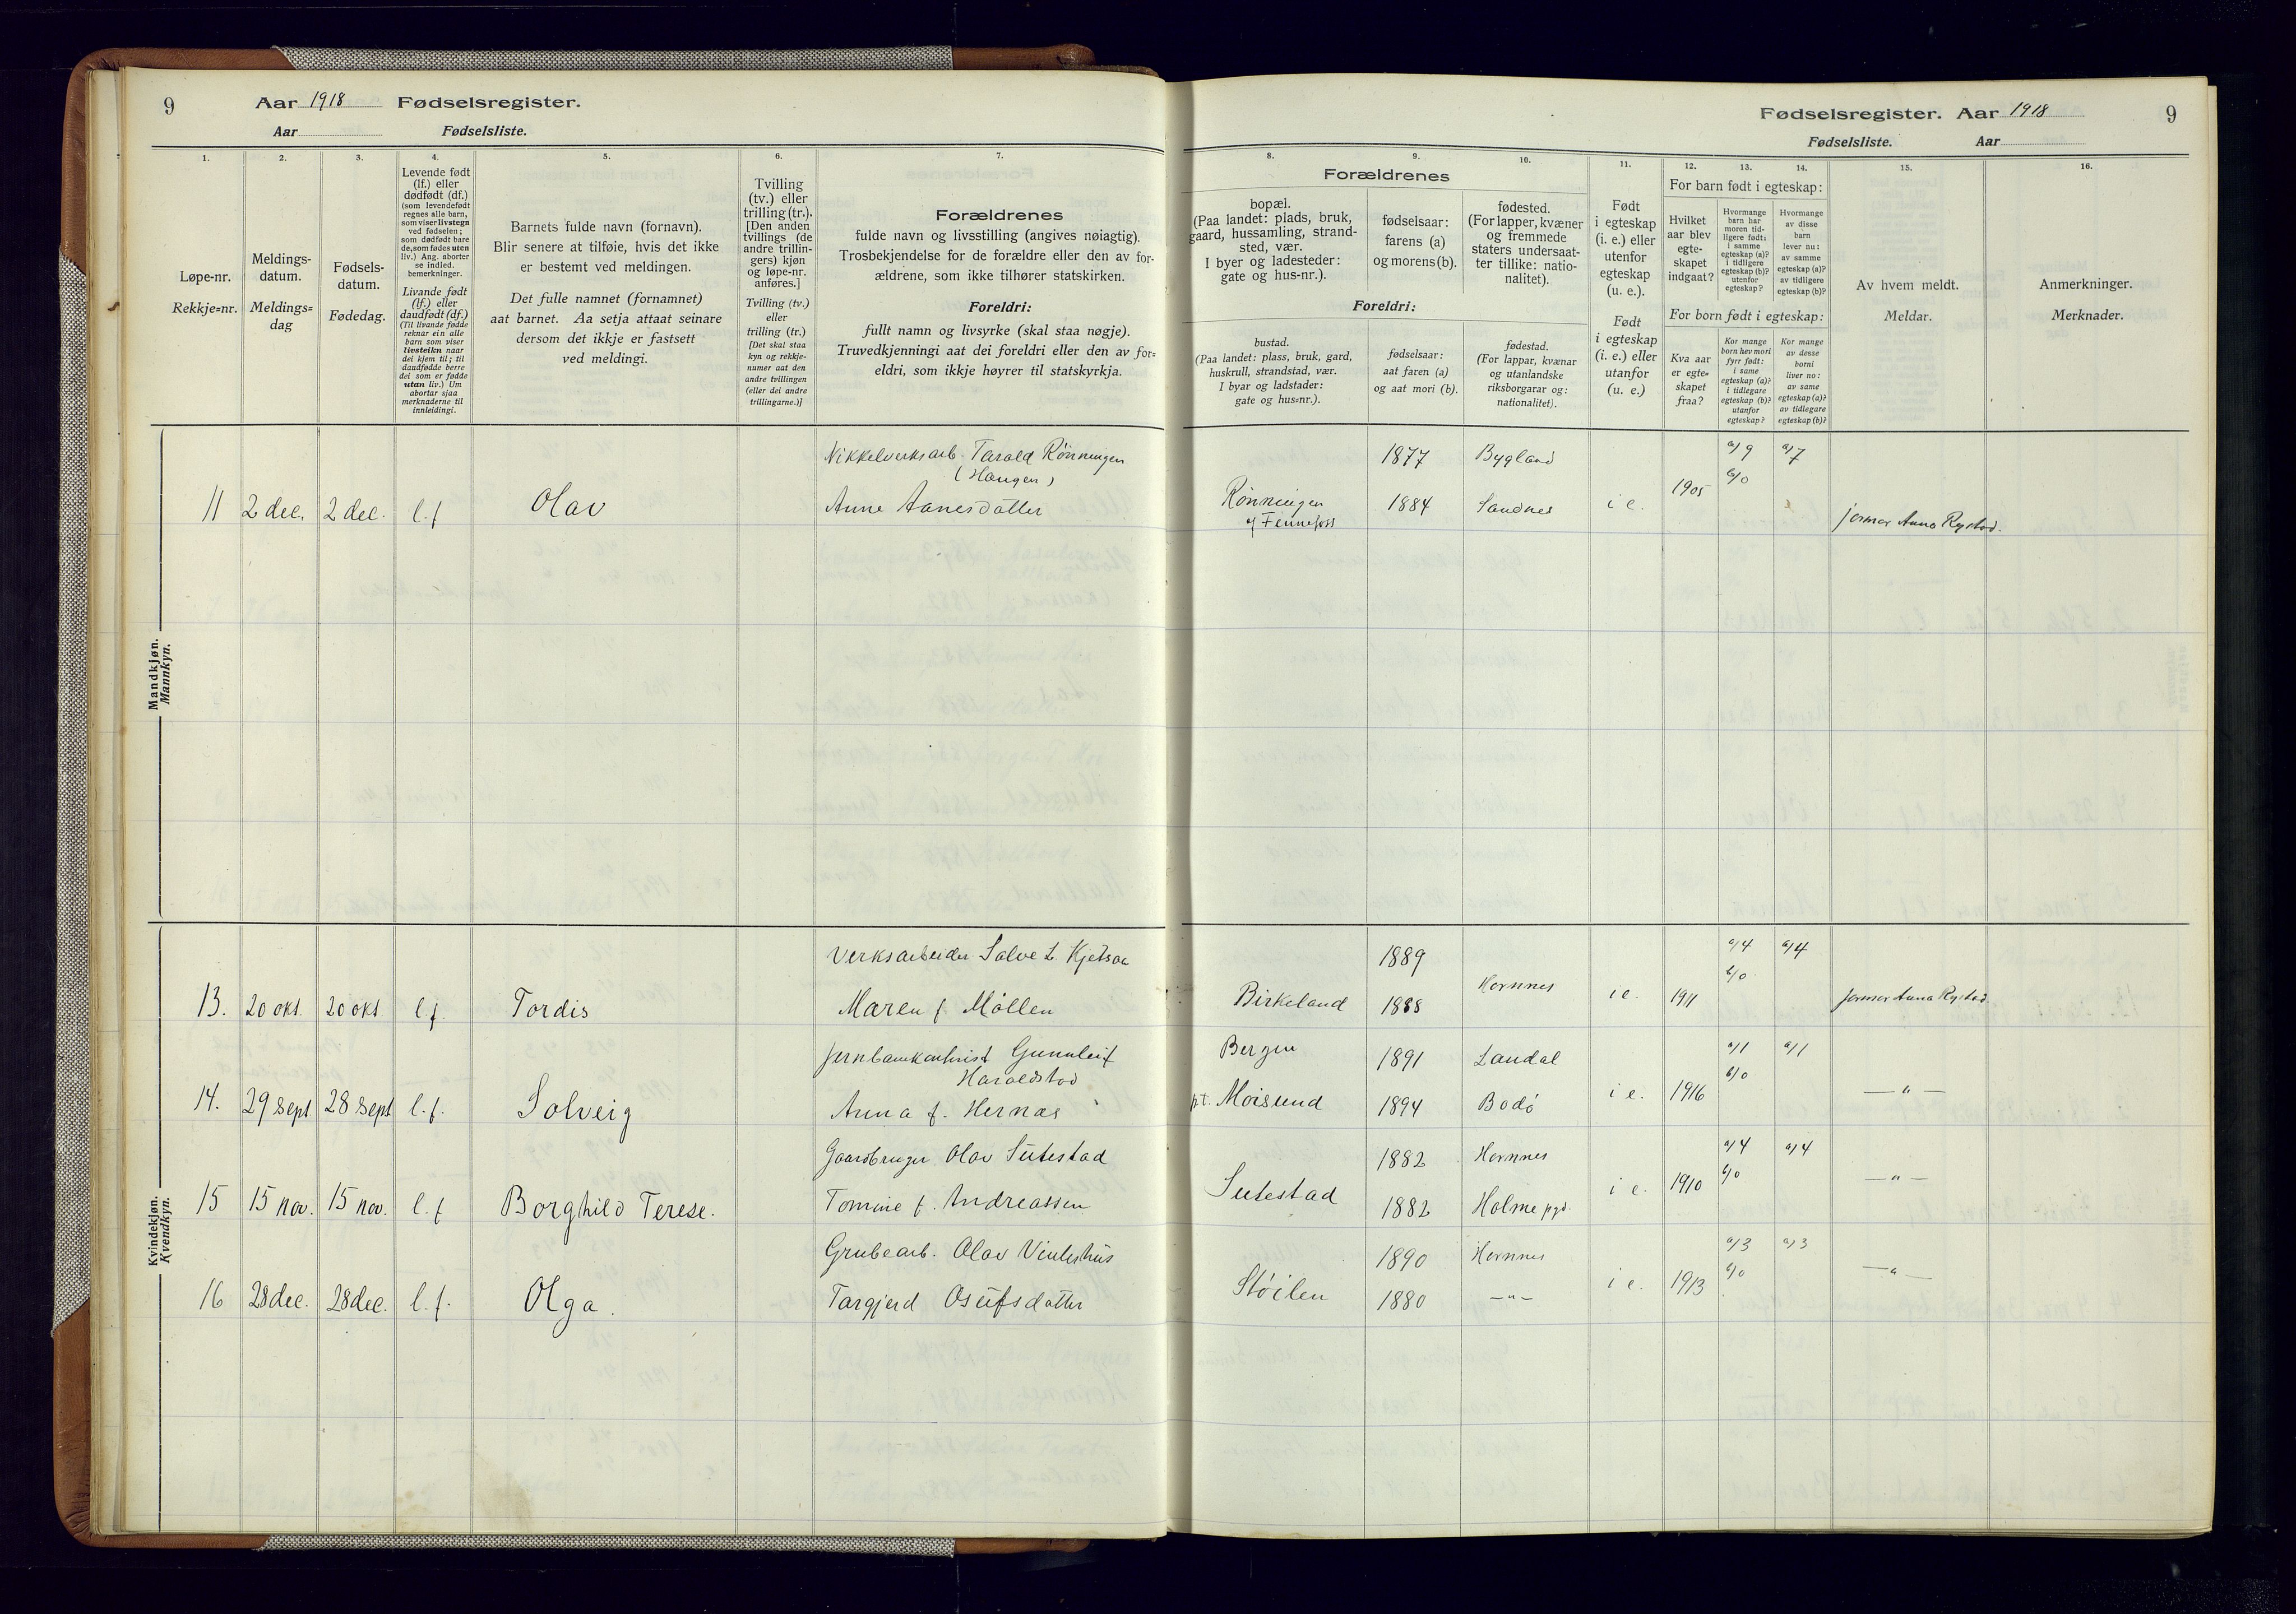 9 Aar 1918 Fødselsregister.
Aar Fødselsliste.
1. 2. 3. 4. 5. 6. 7.
Løpe-nr.
Rekkje=nr.
Meldings-
datum.
Meldings=
dag
Fødsels-
datum.
Fødedag.
Levende født
(lf.) eller
dødfødt (df.)
(som levendefødt
regnes alle barn,
som viser livstegn
ved fødselen;
som dødfødt bare
de, som fødes uten
liv.) Ang. aborter
se indled.
bemerkninger.
Livande født
(lf.) eller
daudfødt (df.)
(Til livande fødde
reknar ein alle
barn som viser
livsteikn naar
dei kjem til; til
daudfødde berre
dei som er fødde
utan liv.) Um
abortar sjaa
merknaderne til
innleidingi.
Barnets fulde navn (fornavn).
Blir senere at tilføie, hvis det ikke
er bestemt ved meldingen.
Det fulle namnet (fornamnet)
aat barnet. Aa setja attaat seinare
dersom det ikkje er fastsett
ved meldingi.
Tvilling
(tv.) eller
trilling (tr.).
[Den anden
tvillings (de
andre trillin-
gers) kjøn
og løpe-nr.
anføres.]
Tvilling (tv.)
eller
trilling (tr.)
[Det skal staa
kyn og rekkje-
numer aat den
andre tvillingen
(eller dei andre
trillingarne.)]
Forældrenes
fulde navn og livsstilling (angives nøiagtig).
Trosbekjendelse for de forældre eller den av for-
ældrene, som ikke tilhører statskirken.
Foreldri:
fullt namn og livsyrke (skal staa nøgje).
Truvedkjenningi aat dei foreldri eller den av for=
eldri, som ikkje høyrer til statskyrkja.
Mandkjøn.
Mannkyn.
Nikkelverksarb. Tarald Rönningen
(Haugen)
11 2 dec. 2 dec. l.f Olav Anne Aanesdatter
Kvindekjøn.
Kvendkyn.
Verksarbeider Salve L. Kjetsaa
13. 20 okt. 20 okt l.f. Tordis Maren f. Möllen
Gunnleif
Haraldstad
14. 29 sept. 28 sept l.f. Solveig Anna f. Hernas
Gaardbruger Olav Sutestad
15 15 nov. 15 nov. l.f Borghild Terese. Tomine f. Andreassen
Grubearb. Olav Vinteshus
16 28 dec. 28 dec. l.f. Olga. Targjerd Osufsdatter
Fødselsregister. Aar 1918 9
Fødselsliste. Aar
8. 9. 10. 11. 12. 13. 14. 15. 16.
Forældrenes
bopæl.
(Paa landet: plads, bruk,
gaard, hussamling, strand-
sted, vær.
I byer og ladesteder:
gate og hus-nr.).
fødselsaar:
farens (a)
og morens (b).
fødested.
(For lapper, kvæner
og fremmede
staters undersaat-
ter tillike: natio-
nalitet).
Foreldri:
bustad.
(Paa landet: plass, bruk, gard,
huskrull, strandstad, vær.
I byar og ladstader:
gate og hus=nr.).
fødselsaar:
aat faren (a)
og aat mori (b).
fødestad.
(For lappar, kvænar
og utanlandske
riksborgarar og:
nationalitet).
Født
i egteskap
(i. e.) eller
utenfor
egteskap
(u. e.).
Født
i egteskap
(i. e.) eller
utanfor
(u. e.)
For barn født i egteskap:
Hvilket
aar blev
egte-
skapet
indgaat?
Hvormange
barn har
moren tid-
ligere født:
i samme
egteskap (a)?
i tidligere
egteskap (b)?
utenfor
egteskap?
Hvormange
av disse
barn
lever nu:
av samme
egteskap (a)?
av tidligere
egteskap (b)?
For born født i egteskap:
Kva aar
er egte=
skapet
fraa?
Kor mange
born hev mori
fyrr født:
i same
egteskap (a)?
i tidlegare
egteskap (b)?
utanfor
egteskap?
Kor mange
av desse
borni
liver no:
av same
egteskap (a)?
av tidlegare
egteskap (b)?
Av hvem meldt.
Meldar.
Anmerkninger.
Merknader.
1877 Bygland a/9 a/7
b/0
Rönningen 1884 Sandnes i e. 1905
af Fennefoss jormor Anna Rystad.
1889 a/4 a/4
Hornnes b/0
Birkeland 1888 i e. 1911 jormor Anna Rystad
Bergen 1891 Laudal a/1 a/1
b/0
p.t. Moisund 1894 Bodö i e. 1916 —"—
1882 Hornnes a/4 a/4
Sutestad i e. 1910 b/0 —"—
1882 Holme pgd.
1890 Hornnes a/3 a/3
Stöilen i e. 1913 b/0 —"—
1880 —"—